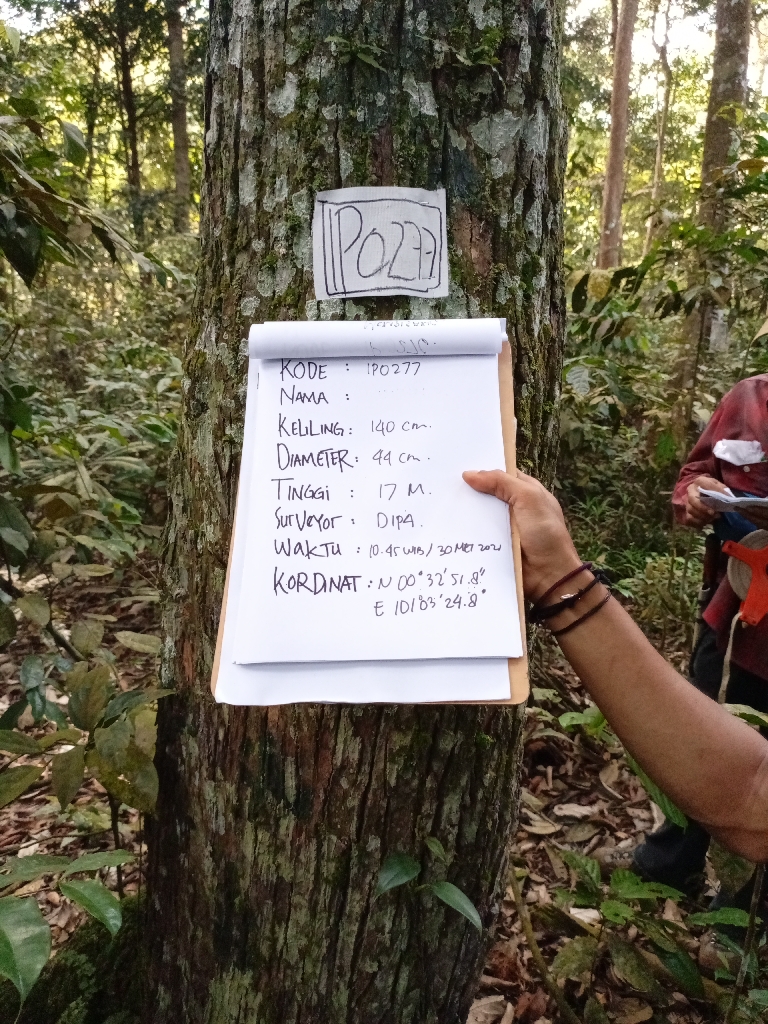 IPO277
KODE : IPO277
NAMA :
KELILING : 140 cm.
DIAMETER : 44 cm.
TINGGI : 17 M.
SURVEYOR : DIPA.
WAKTU : 10.45 WIB / 30 MEI 2021
KORDINAT : N 00° 32' 51.8"
E 101° 03' 24.8"